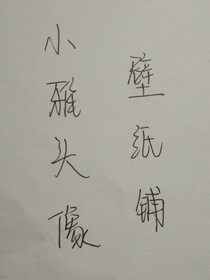 小雅头像
壁纸铺